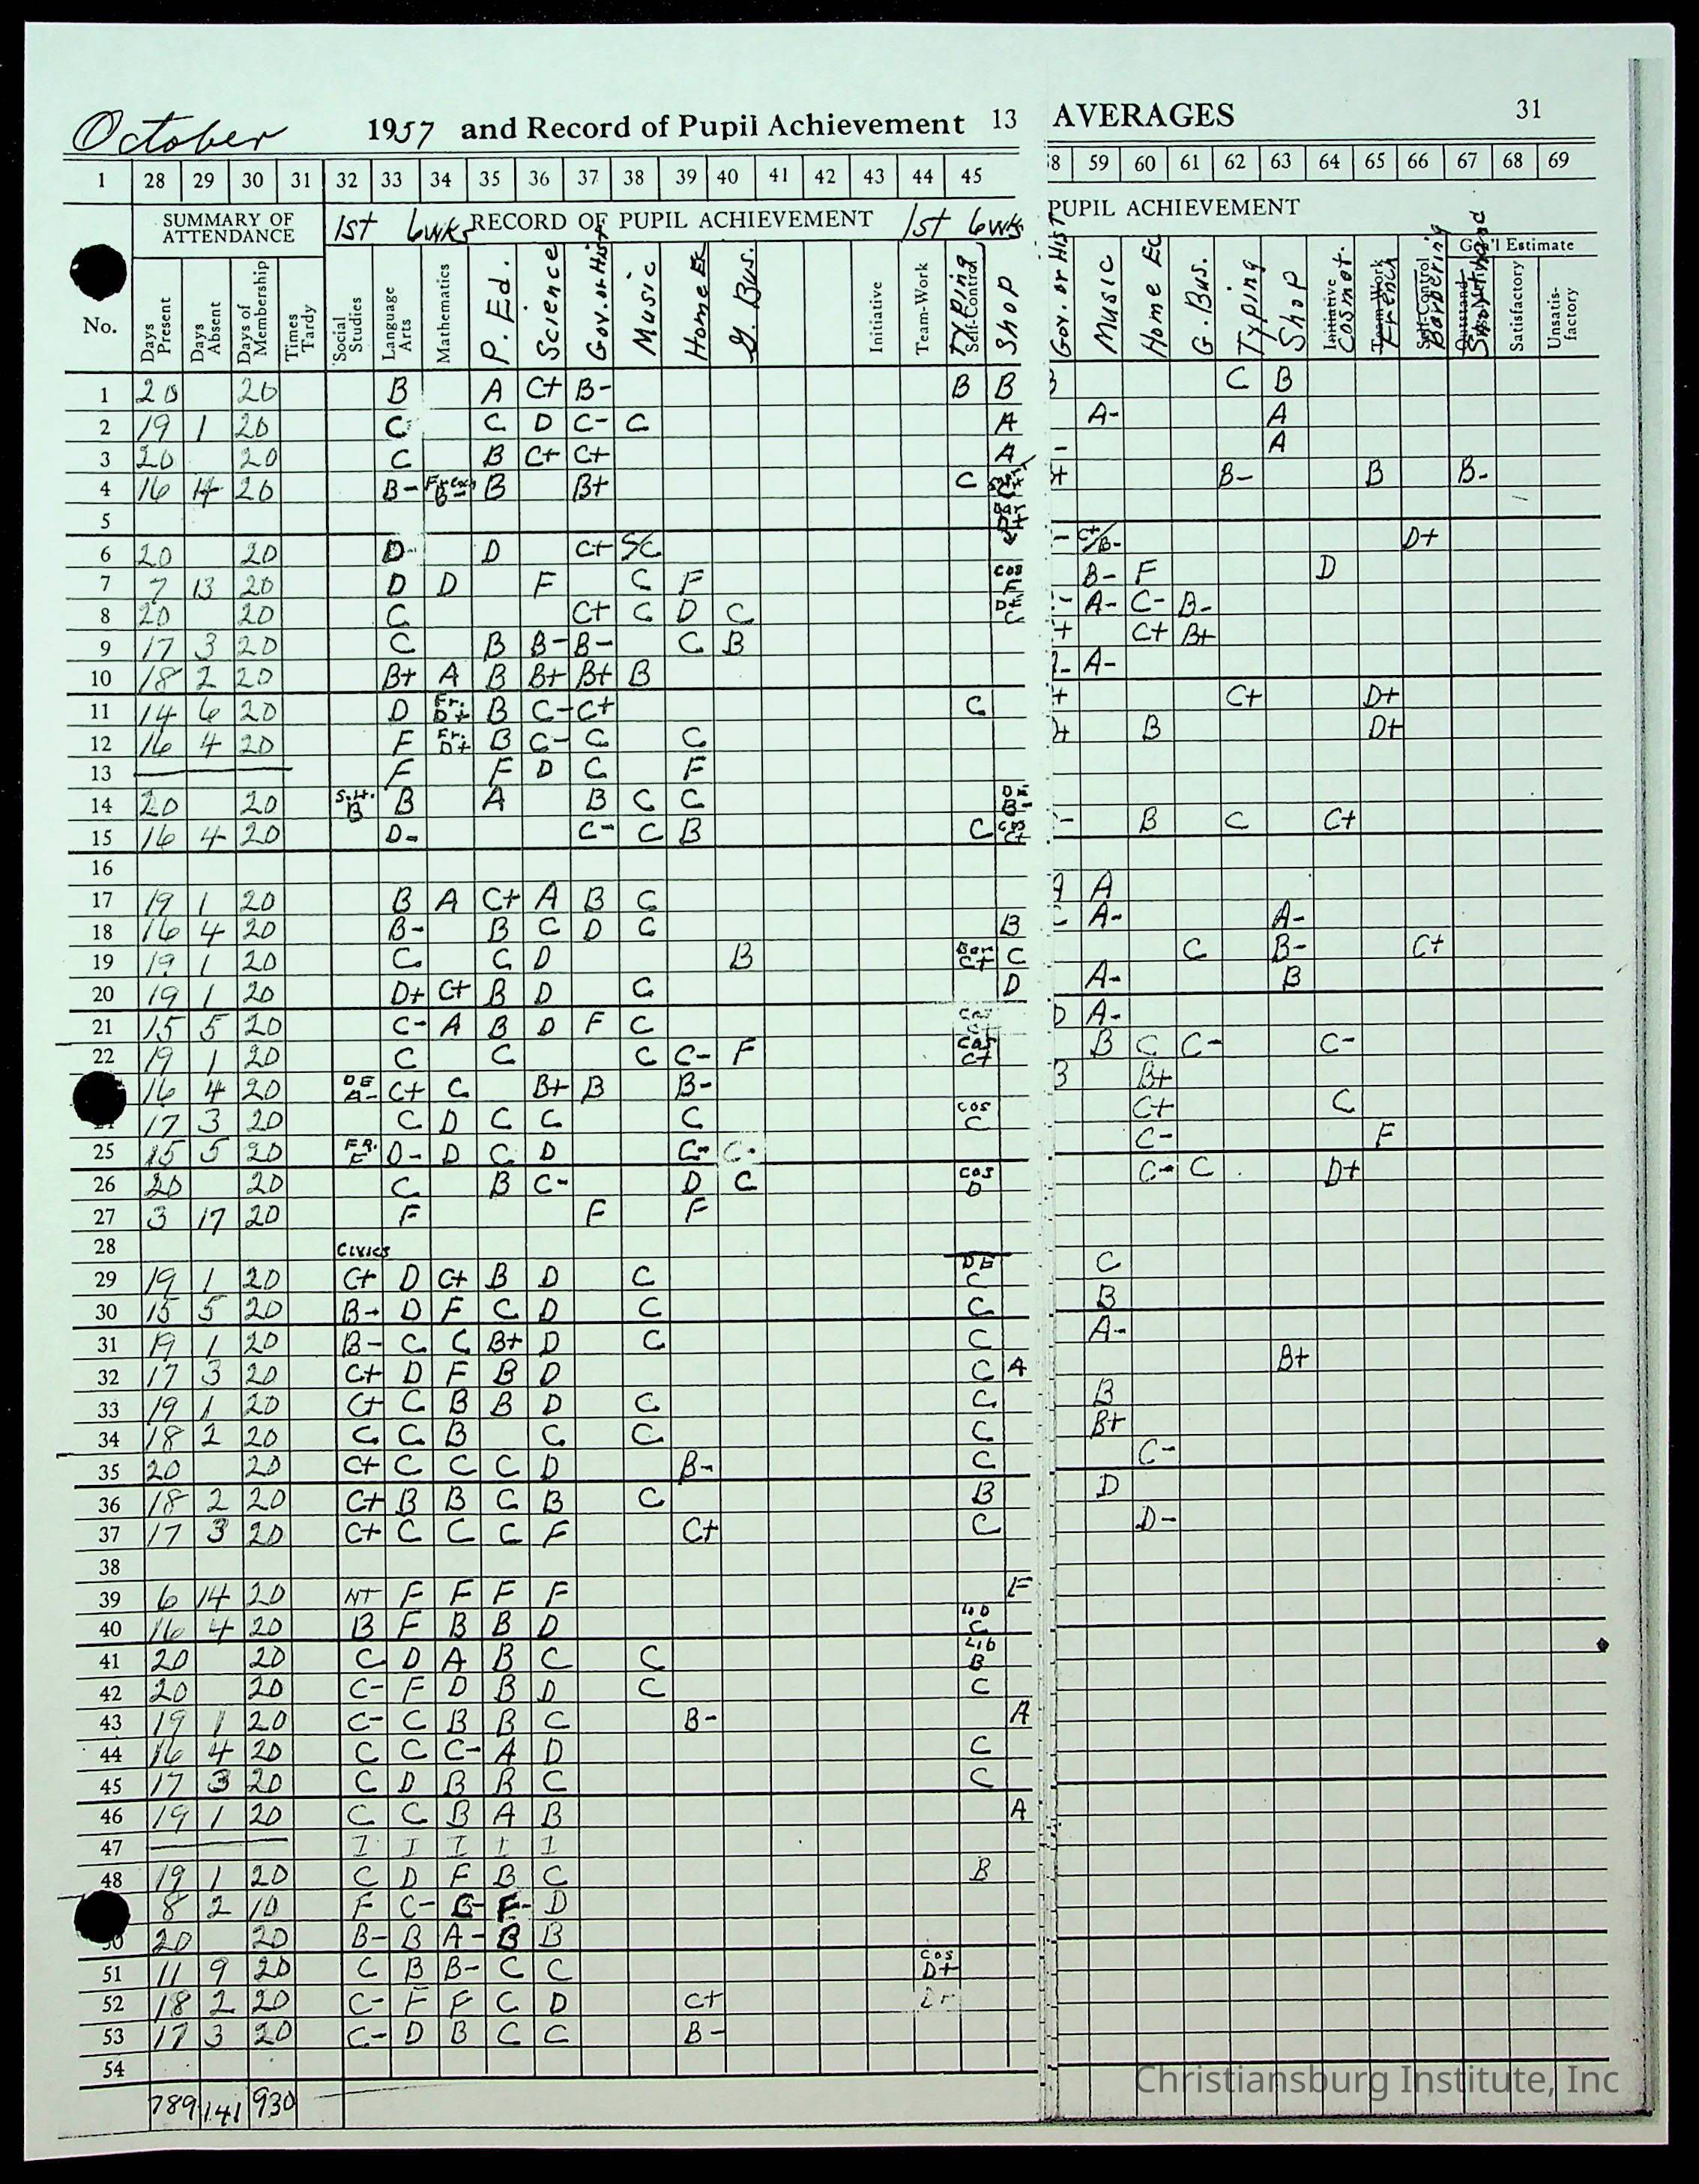 October 1957 and Record of Pupil Achievement 13 AVERAGES 31
1 28 29 30 31 32 33 34 35 36 37 38 39 40 41 42 43 44 45 58 59 60 61 62 63 64 65 66 67 68 69
SUMMARY OF ATTENDANCE 1st 6wks RECORD OF PUPIL ACHIEVEMENT 1st 6wks PUPIL ACHIEVEMENT
Gen'l Estimate
No. Days Present Days Absent Days of Membership Times Tardy Social Studies Language Arts Mathematics P. Ed. Science Gov. or Hist Music Home Ec G. Bus. Initiative Team-Work Typing Self-Control Shop Gov. or Hist Music Home Ec G. Bus. Typing Shop Initiative Cosmot. Team-Work French Self-Control Barbering Shorthand Satisfactory Unsatisfactory
1 20 20 B A C+ B- B B C B
2 19 1 20 C C D C- C A A- A
3 20 20 C B C+ C+ A - A
4 16 4 20 B- B- B B+ C + B- B B-
5
6 20 20 D D C+ - C+/B- D+
7 7 13 20 D D F C F Cos F B- F D
8 20 20 C C+ C D C DE C - A- C- B-
9 17 3 20 C B B- B- C B + C+ B+
10 18 2 20 B+ A B B+ B+ B - A-
11 14 6 20 D Fr. D+ B C- C+ C + C+ D+
12 16 4 20 F Fr. D+ B C- C C + B D+
13 F F D C F
14 20 20 S.H. B B A B C C DE B-
15 16 4 20 D- C- C B C Cos C+ - B C C+
16
17 19 1 20 B A C+ A B C A A
18 16 4 20 B- B C D C B C A- A-
19 19 1 20 C C D B Bar C+ C C B- C+
20 19 1 20 D+ C+ B D C D A- B
21 15 5 20 C- A B D F C D A-
22 19 1 20 C C C C- F Cos C+ B C C- C-
16 4 20 DE A- C+ C B+ B B- B B+
17 3 20 C D C C C Cos C C+ C
25 15 5 20 FR. F D- D C D C- C- C- F
26 20 20 C B C- D C Cos D C- C D+
27 3 17 20 F F F
28 Civics
29 19 1 20 C+ D C+ B D C DE C C
30 15 5 20 B- D F C D C C B
31 19 1 20 B- C C B+ D C C A-
32 17 3 20 C+ D F B D C A B+
33 19 1 20 C+ C B B D C C B
34 18 2 20 C C B C C C B+
35 20 20 C+ C C C D B- C C-
36 18 2 20 C+ B B C B C B D
37 17 3 20 C+ C C C F C+ C D-
38
39 6 14 20 NT F F F F F
40 16 4 20 B F B B D Lib C
41 20 20 C D A B C C Lib B
42 20 20 C- F D B D C C
43 19 1 20 C- C B B C B- A
44 16 4 20 C C C- A D C
45 17 3 20 C D B B C C
46 19 1 20 C C B A B A
47 I I I I I
48 19 1 20 C D F B C B
8 2 10 F C- F- D
50 20 20 B- B A- B B
51 11 9 20 C B B- C C Cos D+
52 18 2 20 C- F F C D C+
53 17 3 20 C- D B C C B-
54
789 141 930
Christiansburg Institute, Inc